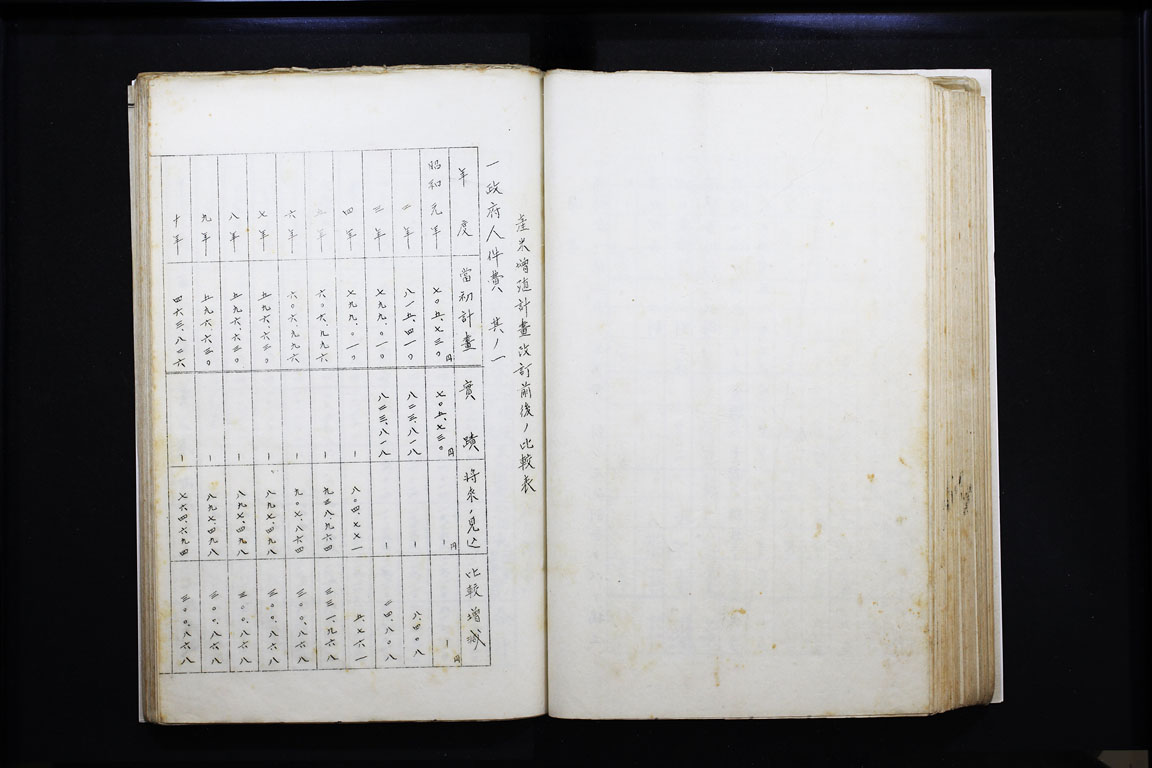 產米增殖計畫改訂前後ノ比較表
一政府人件費 其ノ一
年度 當初計畫 實蹟 將來ノ見込 比較增減
昭和元年 七〇五、七三〇円 七〇五、七三〇円 ー円 ー円
二年 八一五、四一〇 八二三、八一八 ー 八、四〇八
三年 七九九、〇一〇 八二三、八一八 ー 二四、八〇八
四年 七九九、〇一〇 ー 八〇四、七七一 五、七六一
五年 六〇六、九九六 ー 九三八、九六四 三三一、九六八
六年 六〇六、九九六 ー 九〇七、八六四 三〇〇、八六八
七年 五九六、六三〇 ー 八九七、四九八 三〇〇、八六八
八年 五九六、六三〇 ー 八九七、四九八 三〇〇、八六八
九年 五九六、六三〇 ー 八九七、四九八 三〇〇、八六八
十年 四六三、八二六 ー 七六四、六九四 三〇〇、八六八